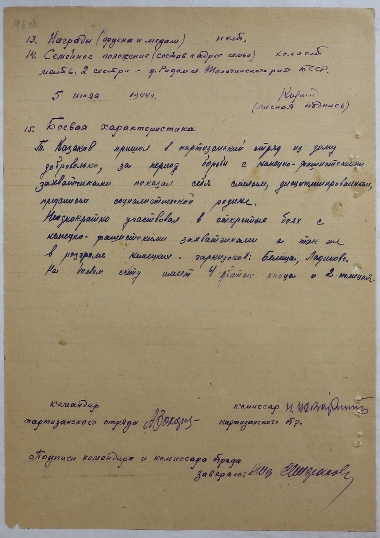 13. Награды (ордена и медали) нет.
14. Семейное положение (состав и адрес семьи) холост
мать, 2 сестры - д. Ридомля Толочинского р-на БССР.
5 июля 1944 г.
(личная подпись)
15. Боевая характеристика
Т. Казаков пришел в партизанский отряд из дому
добровольно, за период борьбы с немецко-фашистскими
захватчиками показал себя смелым, дисциплинированным,
преданным социалистической родине.
Неоднократно участвовал в открытых боях с
немецко-фашистскими захватчиками а так же
в разгроме немецких гарнизонов:
На боевом счету имеет 4 убитых немца и 2
командир
партизанского отряда
комиссар
партизанского
Подписи командира и комиссара отряда
заверяю: